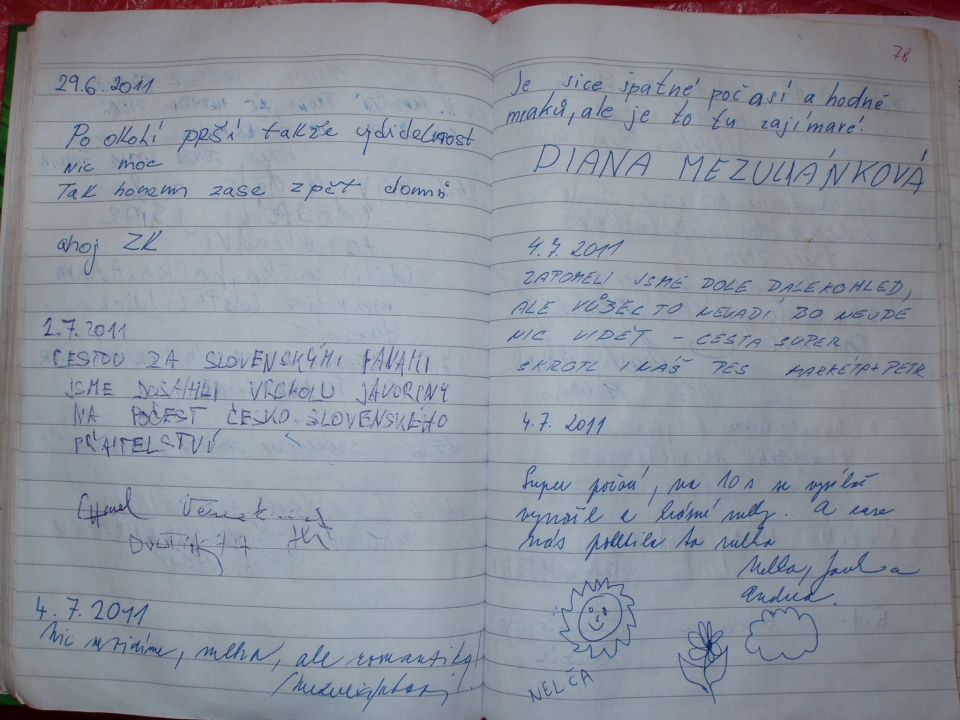 29.6.2011
Po okolí prší takže viditelnost
nic moc
Tak honem zase zpět domů
ahoj ZK
1.7.2011
CESTOU ZA SLOVENSKÝMI PANAMI
JSME DOSÁHLI VRCHOLU JAVORINY
NA POČEST ČESKO-SLOVENSKÉHO
PŘÁTELSTVÍ
4.7.2011
Nic nevidíme, mlha, ale romantika!
78
Je sice špatné počasí a hodně
mraků, ale je to tu zajímavé!
DIANA MEZULIÁNKOVÁ
4.7.2011
ZAPOMĚLI JSME DOLE DALEKOHLED,
ALE VŮBEC TO NEVADÍ, BO NEJDE
NIC VIDĚT - CESTA SUPER
SKROTL I NÁŠ PES MARKÉTA + PETR
4.7.2011
Super počasí, na 10s se vysílač
vynořil z krásné mlhy. A zase
nás pohltila ta mlha
Nelča, a
Andrea.
NELČA